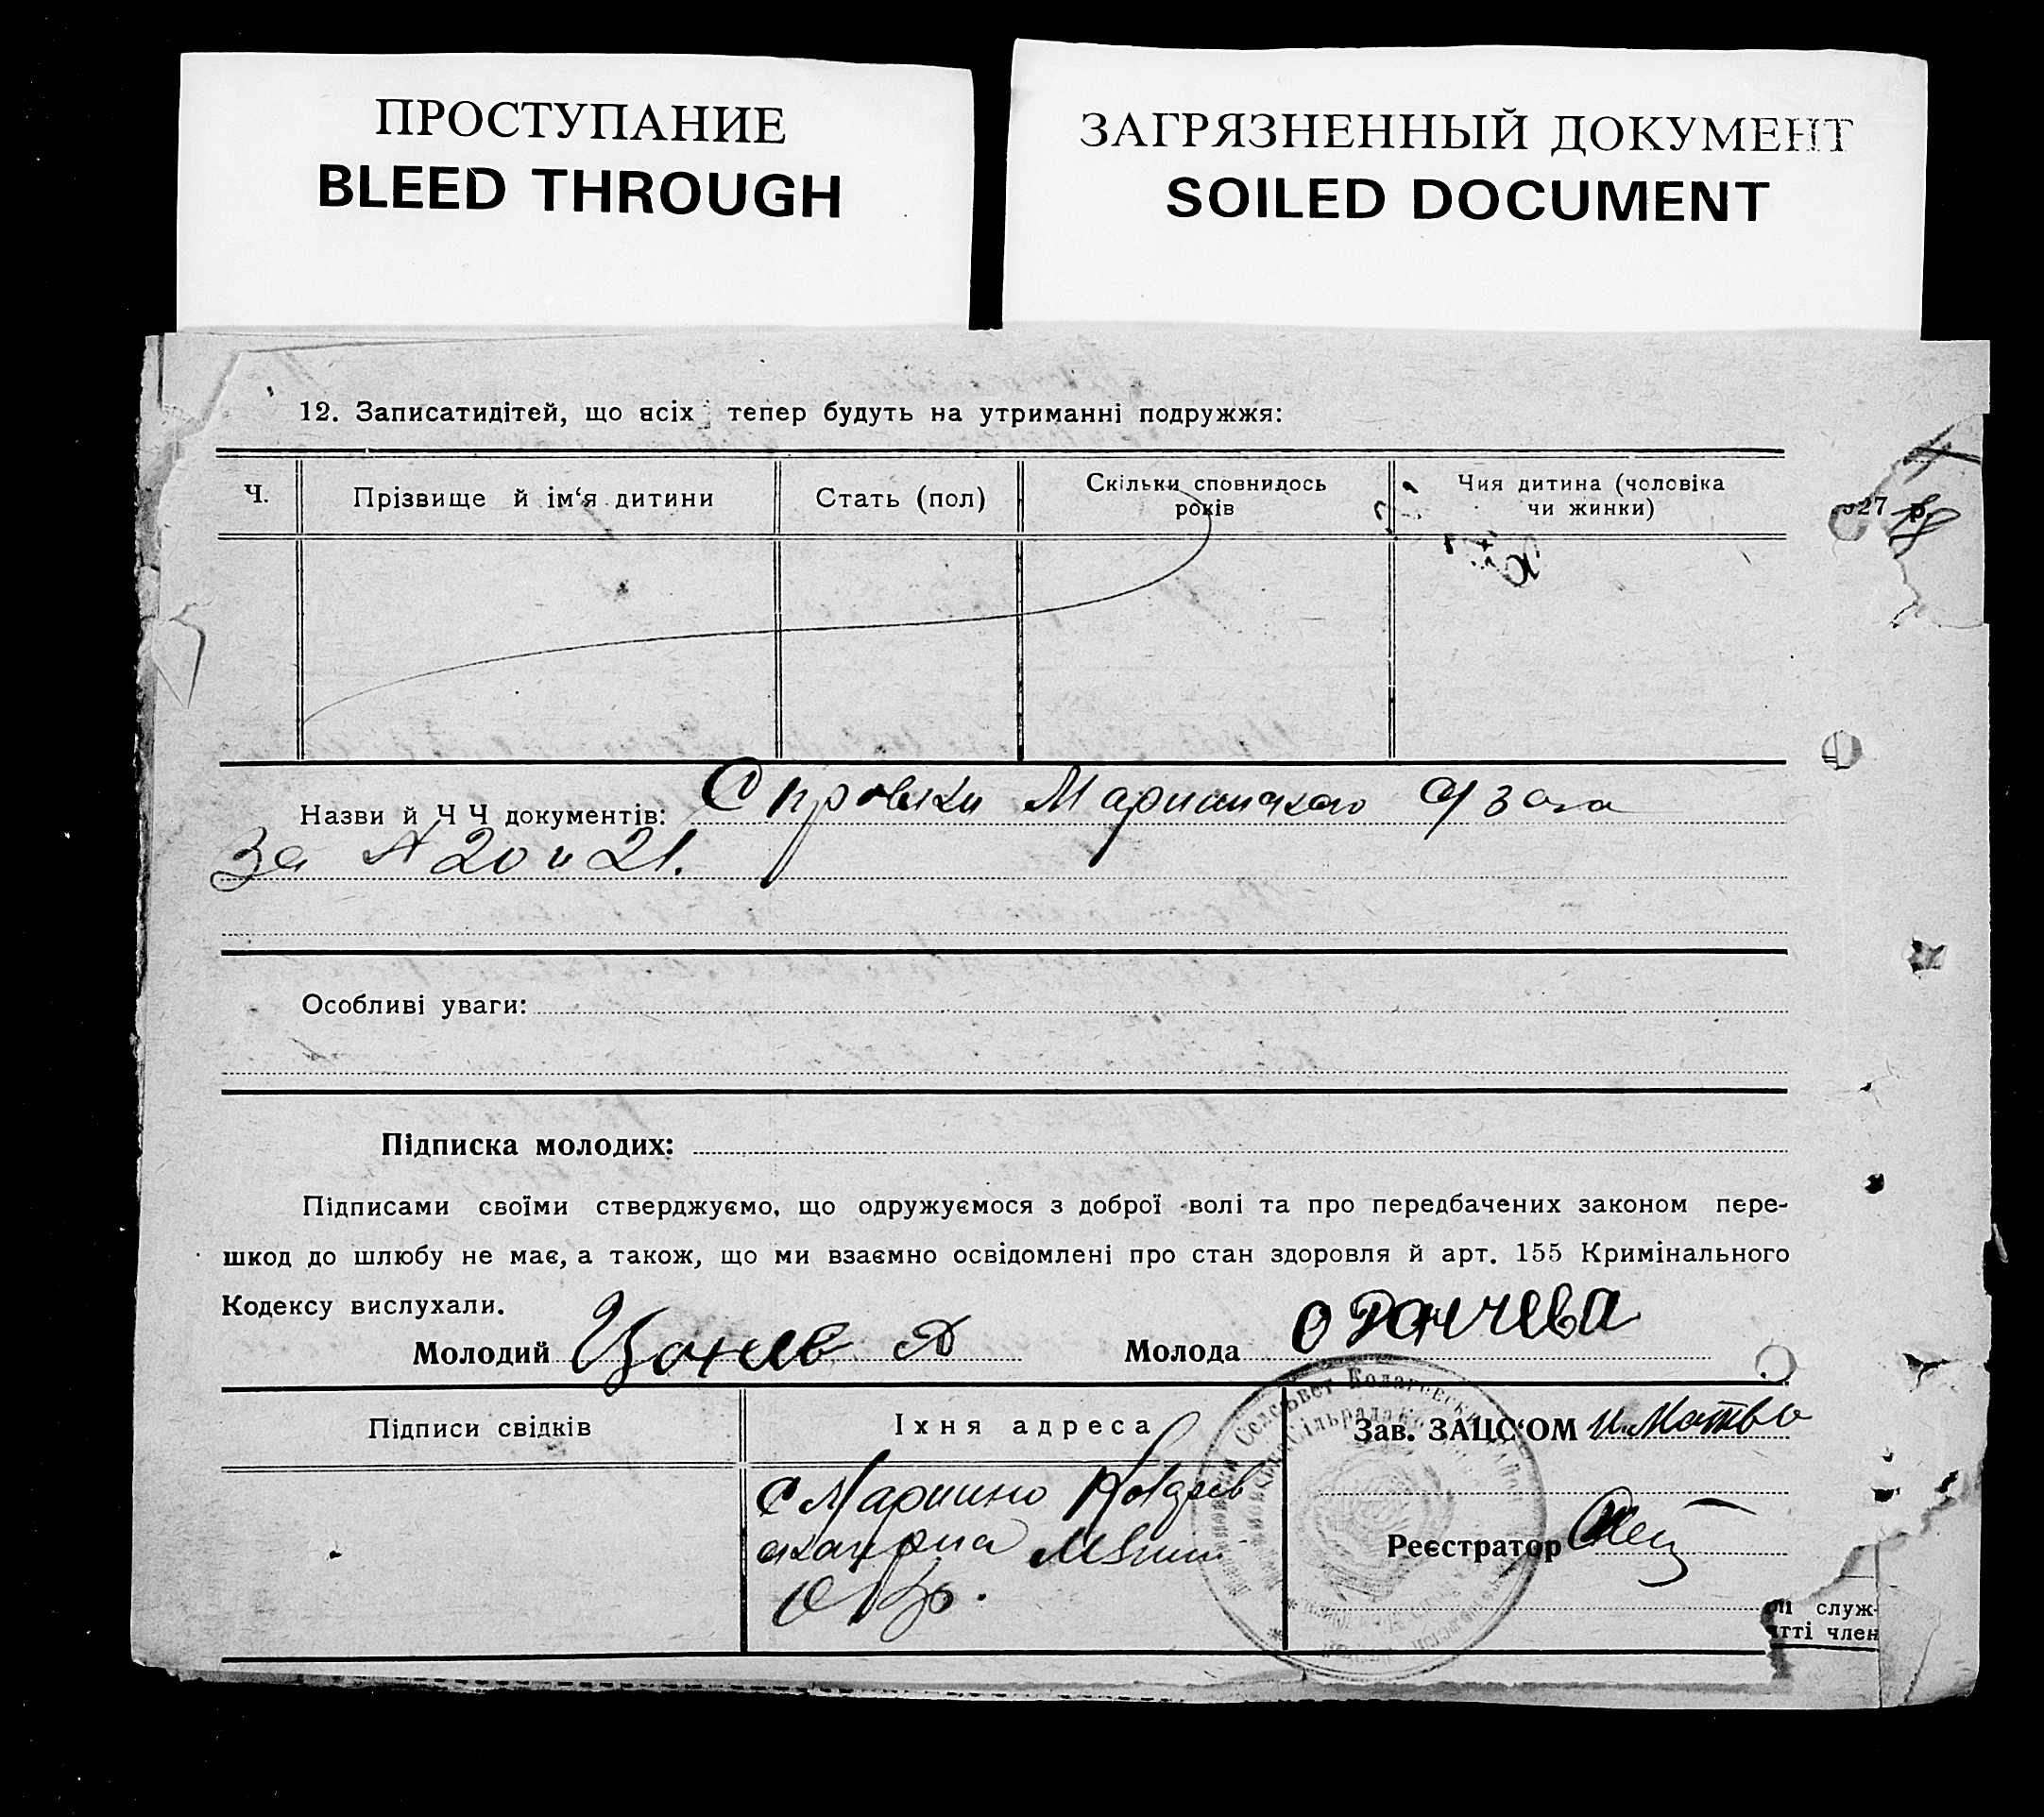 ПРОСТУПАНИЕ
BLEED THROUGH
ЗАГРЯЗНЕННЫЙ ДОКУМЕНТ
SOILED DOCUMENT
12. Записатидітей, що всіх тепер будуть на утриманні подружжя:
Ч.
Прізвище й ім‘я дитини
Стать (пол)
Скільки сповнилось
років
Чия дитина (чоловіка
чи жинки)
927 р.
Назви й Ч Ч документів: Справки Мариинского Загса
За № 20 и 21.
Особливі уваги:
Підписка молодих:
Підписами своїми стверджуємо, що одружуємося з доброї волі та про передбачених законом пере-
шкод до шлюбу не має, а також, що ми взаємно освідомлені про стан здоровля й арт. 155 Кримінального
Кодексу вислухали.
Молодий Цонев Д
Молода О Ранчева
Підписи свідків
Їхня адреса
Зав. ЗАЦС‘ОМ
с Мариино
Реєстратор
служ-
ятті член